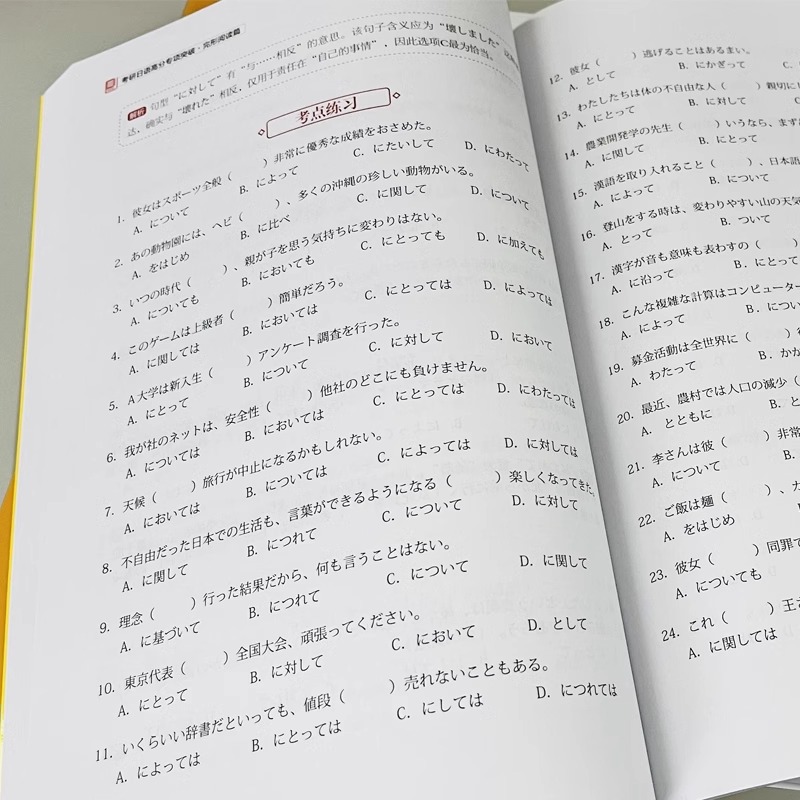 考研日语高分专项突破·完形阅读篇
解析 句型“に対して”有“与……相反”的意思。该句子含义应为“壊しました”
达，确实与“壊れた”相反，仅用于责任在“自己的事情”，因此选项C最为恰当。
考点练习
1. 彼女はスポーツ全般（ ）非常に優秀な成績をおさめた。
A. について B. によって C. にたいして D. にわたって
2. あの動物園には、ヘビ（ ）、多くの沖縄の珍しい動物がいる。
A. をはじめ B. に比べ C. に関して D. について
3. いつの時代（ ）、親が子を思う気持ちに変わりはない。
A. についても B. においても C. にとっても D. に加えても
4. このゲームは上級者（ ）簡単だろう。
A. に関しては B. においては C. にとっては D. によっては
5. A大学は新入生（ ）アンケート調査を行った。
A. にとって B. について C. に対して D. において
6. 我が社のネットは、安全性（ ）他社のどこにも負けません。
A. については B. においては C. にとっては D. にわたっては
7. 天候（ ）旅行が中止になるかもしれない。
A. においては B. については C. によっては D. に対しては
8. 不自由だった日本での生活も、言葉ができるようになる（ ）楽しくなってきた。
A. に関して B. につれて C. について D. に対して
9. 理念（ ）行った結果だから、何も言うことはない。
A. に基づいて B. につれて C. について D. に関して
10. 東京代表（ ）全国大会、頑張ってください。
A. にとって B. に対して C. において D. として
11. いくらいい辞書だといっても、値段（ ）売れないこともある。
A. によっては B. にとっては C. にしては D. につれては
12. 彼女（ ）逃げることはあるまい。
A. として B. にかぎって C. に
13. わたしたちは体の不自由な人（ ）親切に
A. にとって B. に対して C. に
14. 農業開発学の先生（ ）いうなら、まず
A. に関して B. にとって
15. 漢語を取り入れること（ ）、日本語
A. によって B. について
16. 登山をする時は、変わりやすい山の天気
A. とって B. ついて
17. 漢字が音も意味も表わすの（ ）
A. に沿って B. にとって
18. こんな複雑な計算はコンピューター
A. によって B. につい
19. 募金活動は全世界に（ ）
A. わたって B. かか
20. 最近、農村では人口の減少（
A. とともに B. と
21. 李さんは彼（ ）非常
A. について B.
22. ご飯は麺（ ）、
A. をはじめ B.
23. 彼女（ ）同罪で
A. についても
24. これ（ ）王
A. に関しては